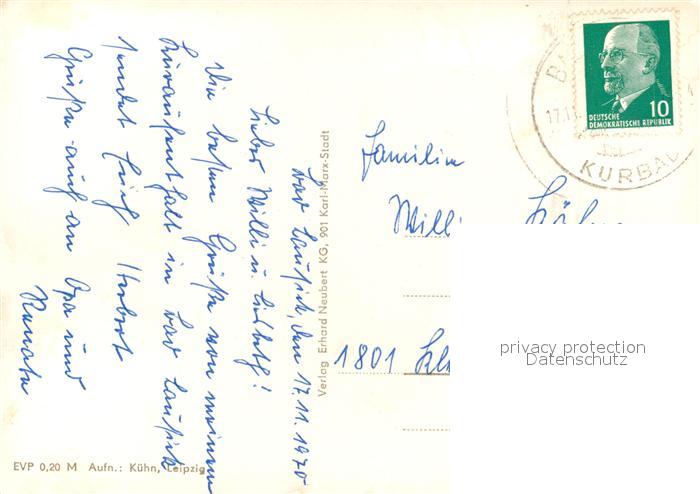 Bad Lausick, den 17.11.1970
Lieber Willi u. Lisbeth!
Die besten Grüße von meinem
Kuraufenthalt in Bad Lausick
sendet Euch Herbert
Grüße auch an Opa und
Renate
EVP 0,20 M Aufn.: Kühn, Leipzig
Verlag Erhard Neubert KG, 901 Karl-Marx-Stadt
10
DEUTSCHE
DEMOKRATISCHE REPUBLIK
17.11
KURBAD
Familie
Willi
1801
privacy protection
Datenschutz